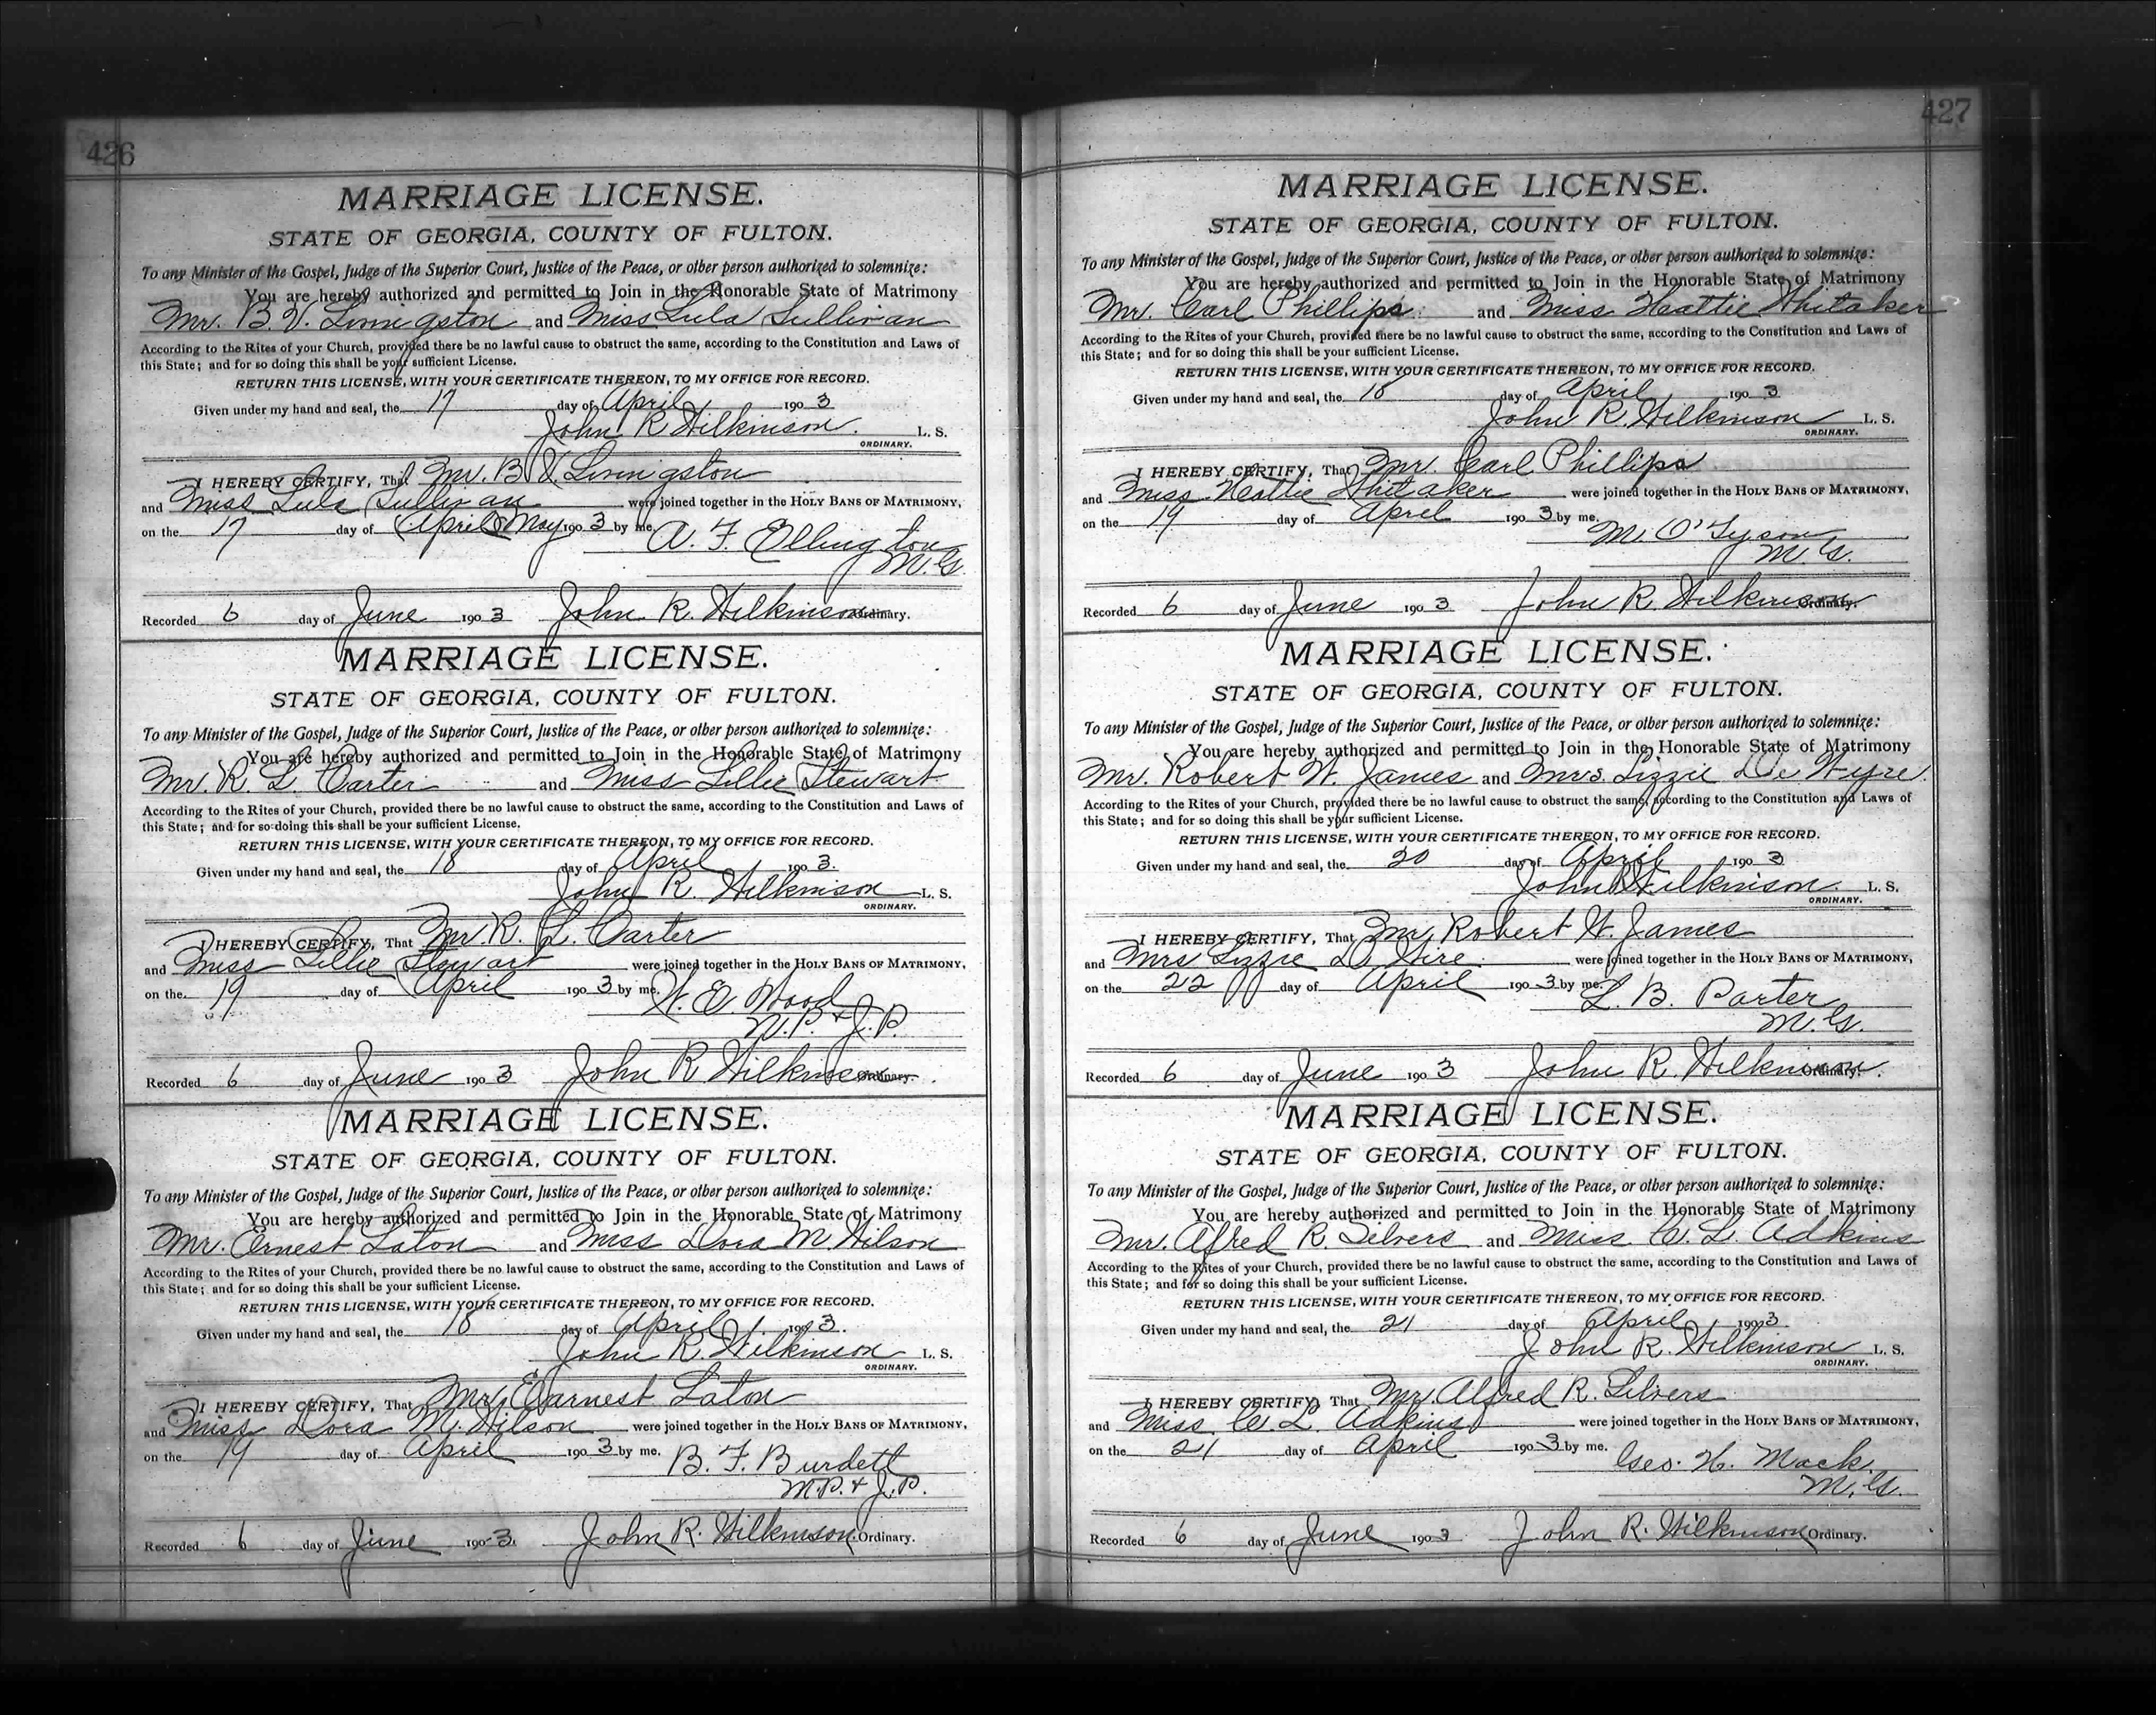 426
MARRIAGE LICENSE.
STATE OF GEORGIA, COUNTY OF FULTON.
To any Minister of the Gospel, Judge of the Superior Court, Justice of the Peace, or other person authorized to solemnize:
You are hereby authorized and permitted to Join in the Honorable State of Matrimony
Mr. B. V. Livingston and Miss Lula Sullivan
According to the Rites of your Church, provided there be no lawful cause to obstruct the same, according to the Constitution and Laws of
this State; and for so doing this shall be your sufficient License.
RETURN THIS LICENSE, WITH YOUR CERTIFICATE THEREON, TO MY OFFICE FOR RECORD.
Given under my hand and seal, the 17 day of April 1903
John R. Wilkinson L. S.
ORDINARY.
I HEREBY CERTIFY, That Mr. B V. Livingston
and Miss Lula Sullivan were joined together in the HOLY BANS OF MATRIMONY,
on the 17 day of (April) May 1903 by me,
A. F. Ellington
M.G.
Recorded 6 day of June 1903 John R. Wilkinson Ordinary.
MARRIAGE LICENSE.
STATE OF GEORGIA, COUNTY OF FULTON.
To any Minister of the Gospel, Judge of the Superior Court, Justice of the Peace, or other person authorized to solemnize:
You are hereby authorized and permitted to Join in the Honorable State of Matrimony
Mr. R. L. Carter and Miss Lillie Stewart
According to the Rites of your Church, provided there be no lawful cause to obstruct the same, according to the Constitution and Laws of
this State; and for so doing this shall be your sufficient License.
RETURN THIS LICENSE, WITH YOUR CERTIFICATE THEREON, TO MY OFFICE FOR RECORD.
Given under my hand and seal, the 18 day of April 1903.
John R. Wilkinson L. S.
ORDINARY.
I HEREBY CERTIFY, That Mr. R. L. Carter
and Miss Lillie Stewart were joined together in the HOLY BANS OF MATRIMONY,
on the 19 day of April 1903 by me,
W. E. Wood
N.P. & J.P.
Recorded 6 day of June 1903 John R Wilkinson Ordinary.
MARRIAGE LICENSE.
STATE OF GEORGIA, COUNTY OF FULTON.
To any Minister of the Gospel, Judge of the Superior Court, Justice of the Peace, or other person authorized to solemnize:
You are hereby authorized and permitted to Join in the Honorable State of Matrimony
Mr. Ernest Laton and Miss Dora M Wilson
According to the Rites of your Church, provided there be no lawful cause to obstruct the same, according to the Constitution and Laws of
this State; and for so doing this shall be your sufficient License.
RETURN THIS LICENSE, WITH YOUR CERTIFICATE THEREON, TO MY OFFICE FOR RECORD.
Given under my hand and seal, the 18 day of April 1903.
John R. Wilkinson L. S.
ORDINARY.
I HEREBY CERTIFY, That Mr. Earnest Laton
and Miss Dora M. Wilson were joined together in the HOLY BANS OF MATRIMONY,
on the 19 day of April 1903 by me.
B. F. Burdett
N.P. & J.P.
Recorded 6 day of June 1903. John R. Wilkinson Ordinary.
427
MARRIAGE LICENSE.
STATE OF GEORGIA, COUNTY OF FULTON.
To any Minister of the Gospel, Judge of the Superior Court, Justice of the Peace, or other person authorized to solemnize:
You are hereby authorized and permitted to Join in the Honorable State of Matrimony
Mr. Carl Phillips and Miss Hattie Whitaker
According to the Rites of your Church, provided there be no lawful cause to obstruct the same, according to the Constitution and Laws of
this State; and for so doing this shall be your sufficient License.
RETURN THIS LICENSE, WITH YOUR CERTIFICATE THEREON, TO MY OFFICE FOR RECORD.
Given under my hand and seal, the 18 day of April 1903
John R. Wilkinson L. S.
ORDINARY.
I HEREBY CERTIFY, That Mr. Carl Phillips
and Miss Hattie Whitaker were joined together in the HOLY BANS OF MATRIMONY,
on the 19 day of April 1903 by me.
M. O'Tyson
M. G.
Recorded 6 day of June 1903 John R. Wilkinson Ordinary.
MARRIAGE LICENSE.
STATE OF GEORGIA, COUNTY OF FULTON.
To any Minister of the Gospel, Judge of the Superior Court, Justice of the Peace, or other person authorized to solemnize:
You are hereby authorized and permitted to Join in the Honorable State of Matrimony
Mr. Robert W. James and Mrs. Lizzie De Wyre.
According to the Rites of your Church, provided there be no lawful cause to obstruct the same, according to the Constitution and Laws of
this State; and for so doing this shall be your sufficient License.
RETURN THIS LICENSE, WITH YOUR CERTIFICATE THEREON, TO MY OFFICE FOR RECORD.
Given under my hand and seal, the 20 day of April 1903
John R Wilkinson L. S.
ORDINARY.
I HEREBY CERTIFY, That Mr. Robert W. James
and Mrs Lizzie D Wire were joined together in the HOLY BANS OF MATRIMONY,
on the 22 day of April 1903 by me.
L. B. Parter
M.G.
Recorded 6 day of June 1903 John R. Wilkinson Ordinary.
MARRIAGE LICENSE.
STATE OF GEORGIA, COUNTY OF FULTON.
To any Minister of the Gospel, Judge of the Superior Court, Justice of the Peace, or other person authorized to solemnize:
You are hereby authorized and permitted to Join in the Honorable State of Matrimony
Mr. Alfred R. Silvers and Miss C. L. Adkins
According to the Rites of your Church, provided there be no lawful cause to obstruct the same, according to the Constitution and Laws of
this State; and for so doing this shall be your sufficient License.
RETURN THIS LICENSE, WITH YOUR CERTIFICATE THEREON, TO MY OFFICE FOR RECORD.
Given under my hand and seal, the 21 day of April 1903
John R. Wilkinson L. S.
ORDINARY.
I HEREBY CERTIFY, That Mr. Alfred R. Silvers
and Miss C. L. Adkins were joined together in the HOLY BANS OF MATRIMONY,
on the 21 day of April 1903 by me.
Geo. H. Mack
M.G.
Recorded 6 day of June 1903 John R. Wilkinson Ordinary.